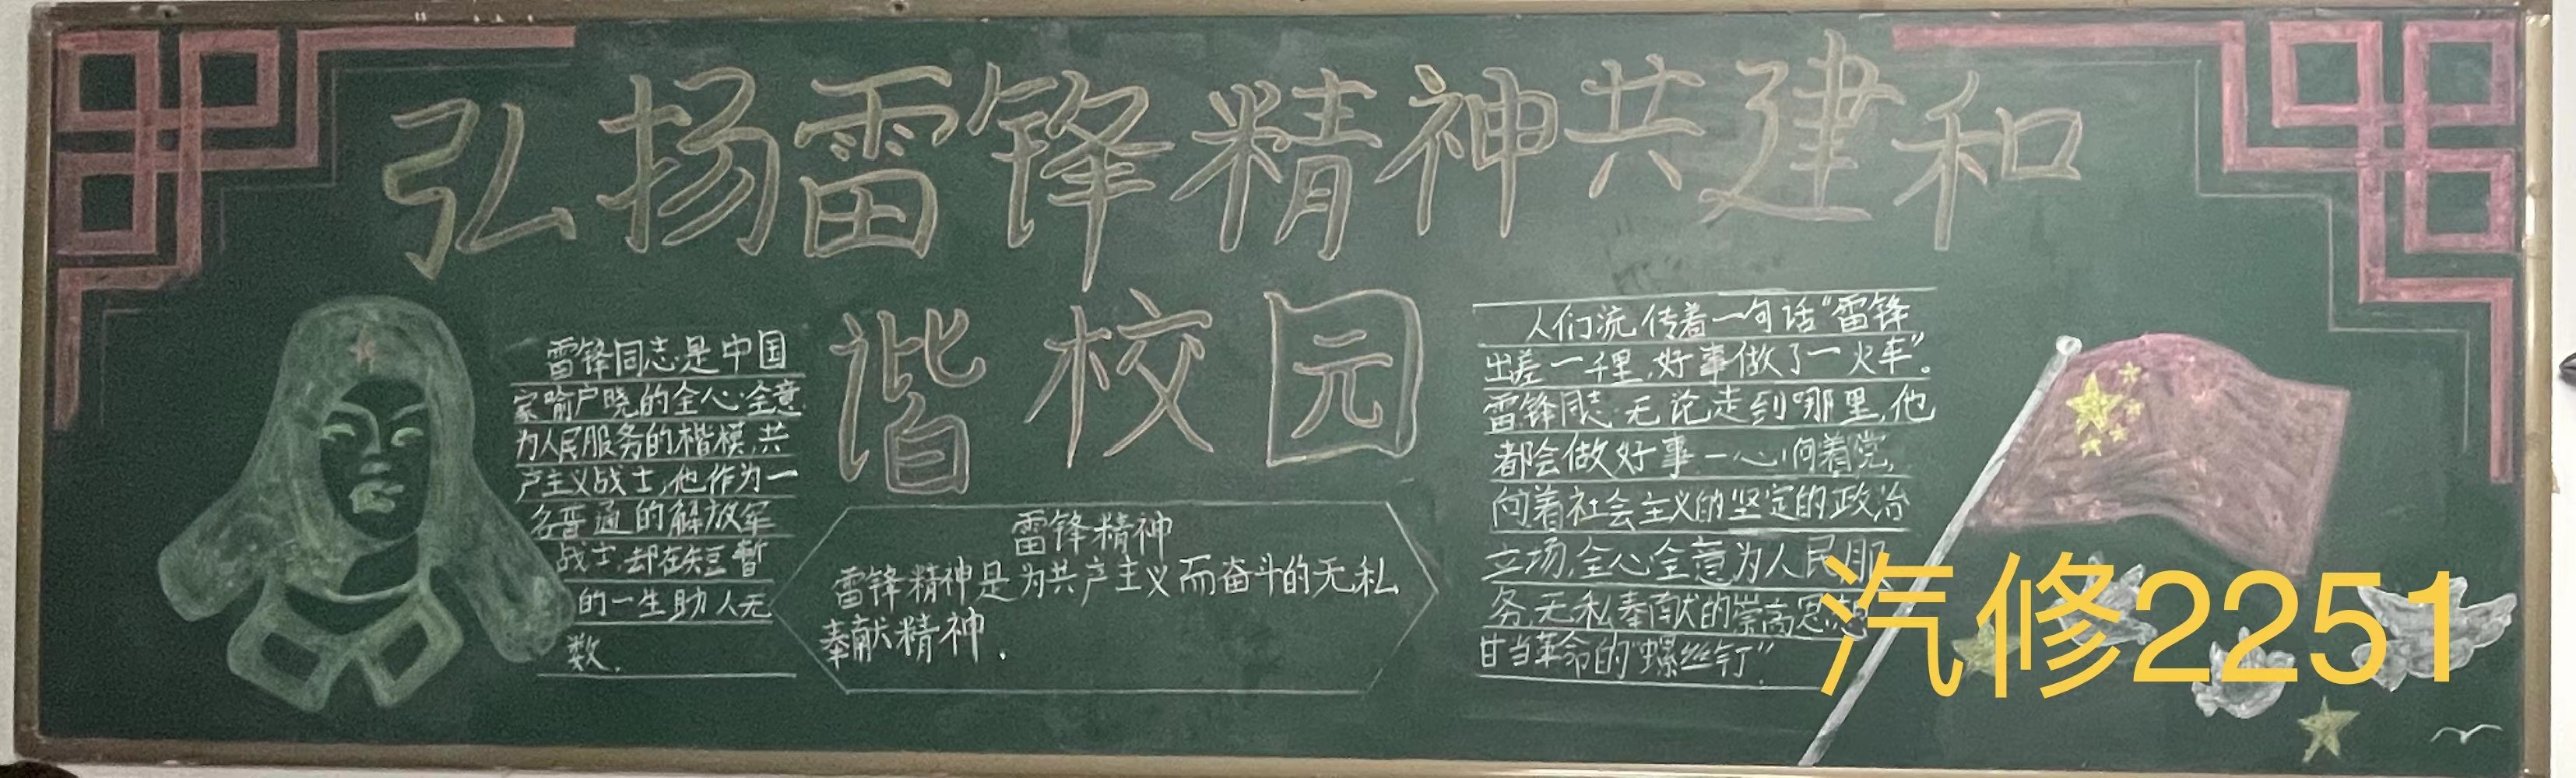 弘扬雷锋精神共建和
谐校园
雷锋同志是中国
家喻户晓的全心全意
为人民服务的楷模,共
产主义战士,他作为一
名普通的解放军
战士,却在短暂
的一生助人无
数.
雷锋精神
雷锋精神是为共产主义而奋斗的无私
奉献精神.
人们流传着一句话“雷锋
出差一千里,好事做了一火车”。
雷锋同志无论走到哪里,他
都会做好事一心向着党,
向着社会主义的坚定的政治
立场,全心全意为人民服
务,无私奉献的崇高思想
甘当革命的“螺丝钉”.
汽修2251